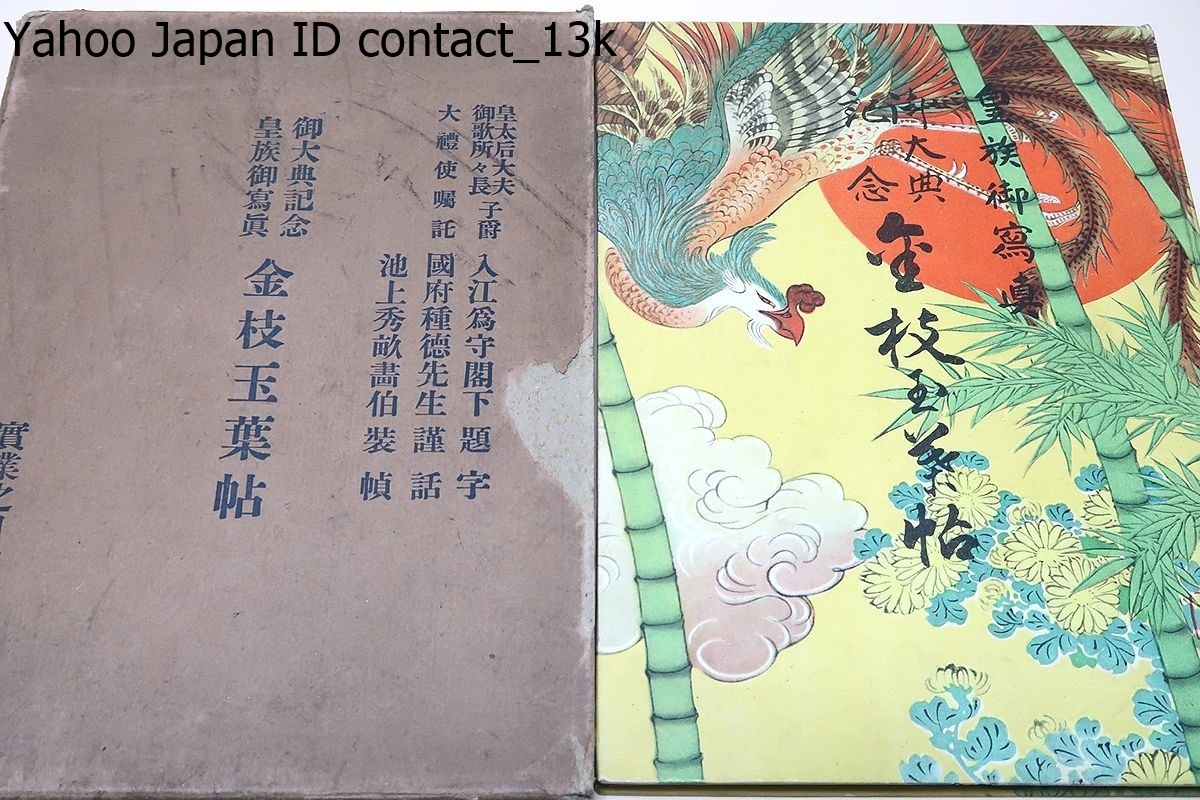 Yahoo Japan ID contact_13k
皇太后大夫
御歌所々長 子爵 入江爲守閣下 題字
大禮使嘱託 國府種德先生 謹話
池上秀畝畵伯 裝幀
御大典記念
皇族御寫眞
金枝玉葉帖
實業之日
皇族御寫真
御大典
記念
金枝玉葉帖